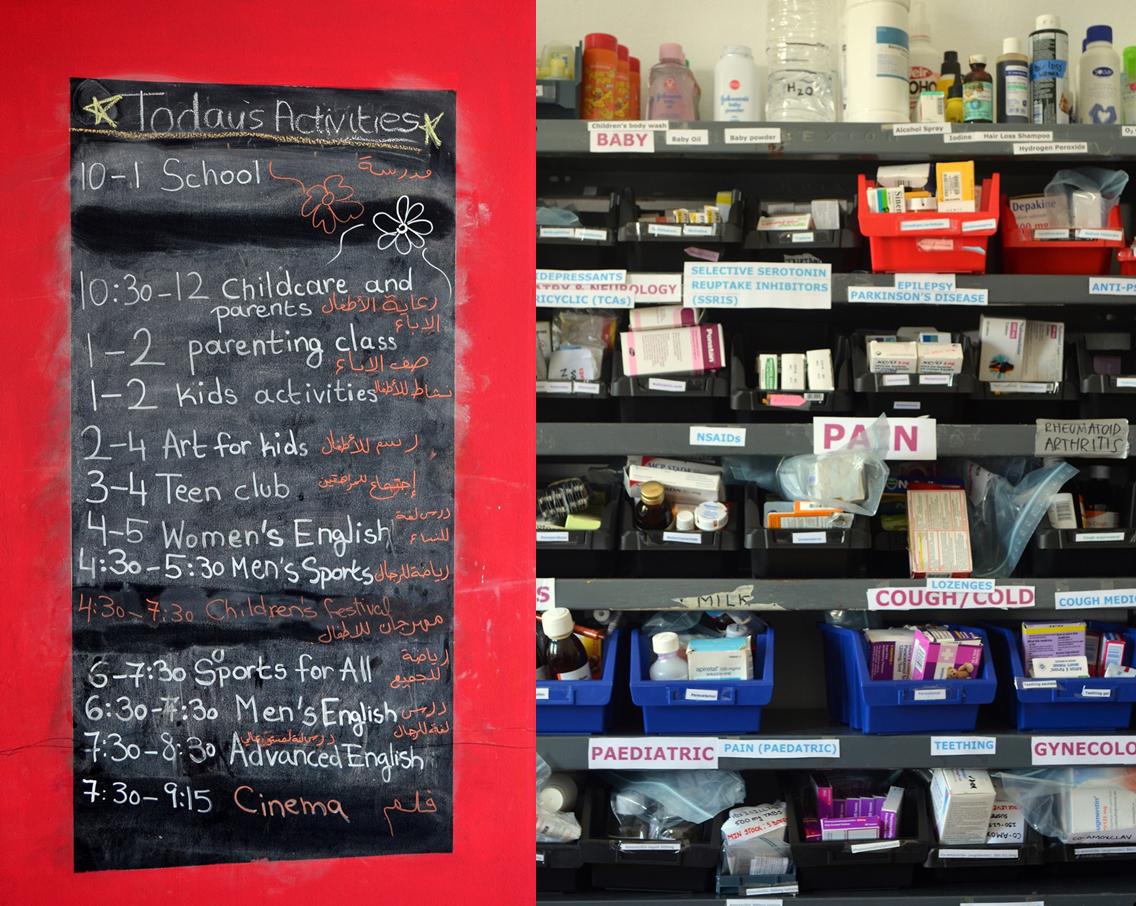 Today's Activities
10-1 School مدرسة
10:30-12 childcare and
parents رعاية الأطفال
الاباء
1-2 parenting class
صف الاباء
1-2 kids activities نشاط للأطفال
2-4 Art for kids رسم للأطفال
3-4 Teen club إجتماع للمراهقين
4-5 Women's English درس لغة
للنساء
4:30-5:30 Men's Sports رياضة للرجال
4:30-7:30 Children's festival
مهرجان للاطفال
6-7:30 Sports for All رياضة
للجميع
6:30-7:30 Men's English درس
لغة للرجال
7:30-8:30 Advanced English
7:30-9:15 Cinema فلم
H₂O
Children's body wash
BABY
Baby Oil
Baby powder
Alcohol Spray
Iodine
Hair Loss Shampoo
Hydrogen Peroxide
Depakine
IDEPRESSANTS
ATRY & NEUROLOGY
RICYCLIC (TCAs)
SELECTIVE SEROTONIN
REUPTAKE INHIBITORS
(SSRIS)
EPILEPSY
PARKINSON'S DISEASE
ANTI-PS
Ponstan
NSAIDs
PAIN
RHEUMATOID
ARTHRITIS
MILK
LOZENGES
COUGH/COLD
COUGH MEDIC
apiretal
Paracetamol
Teething gel
PAEDIATRIC
PAIN (PAEDATRIC)
TEETHING
GYNECOLO
MIN STOCK: 5
CO-AMOXCLAV